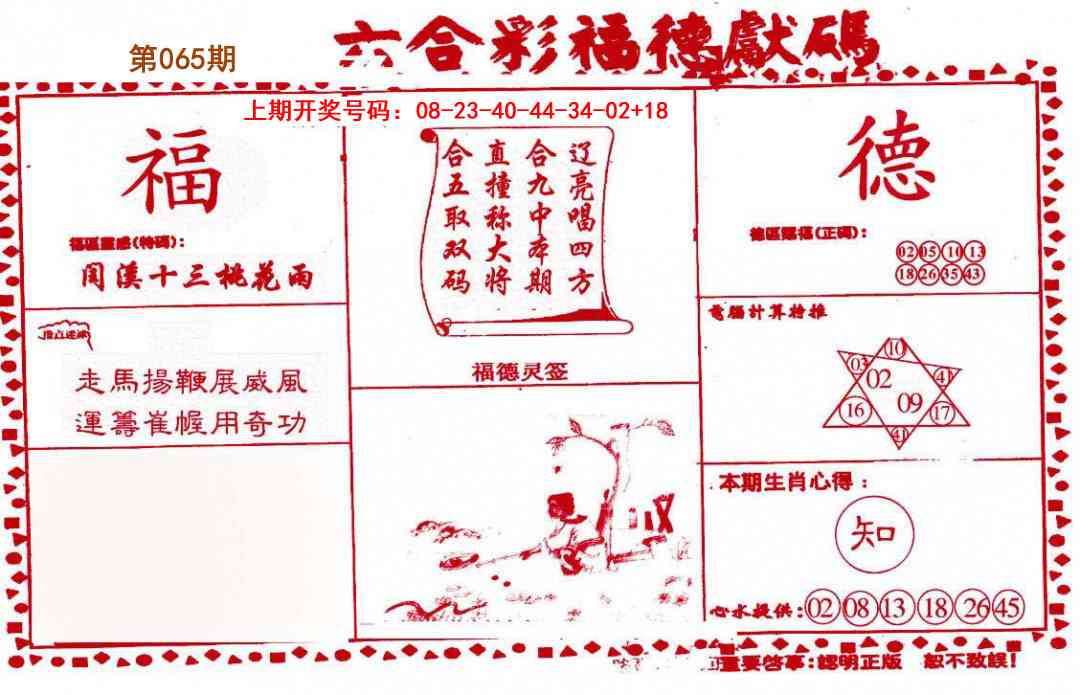 六合彩福德獻碼
第065期
上期开奖号码：08-23-40-44-34-02+18
福
福區靈感(特碼)：
閏溪十三桃花雨
走馬揚鞭展威風
運籌崔幄用奇功
辽亮唱四方
合九中本期
直撞称大将
合五取双码
福德灵签
德
德區賜福(正碼)：
02 05 10 13
18 26 35 43
電腦計算特推
10
03 02 41
16 09 17
41
本期生肖心得：
知
心水提供：02 08 13 18 26 45
重要啓事：認明正版 恕不致誤！